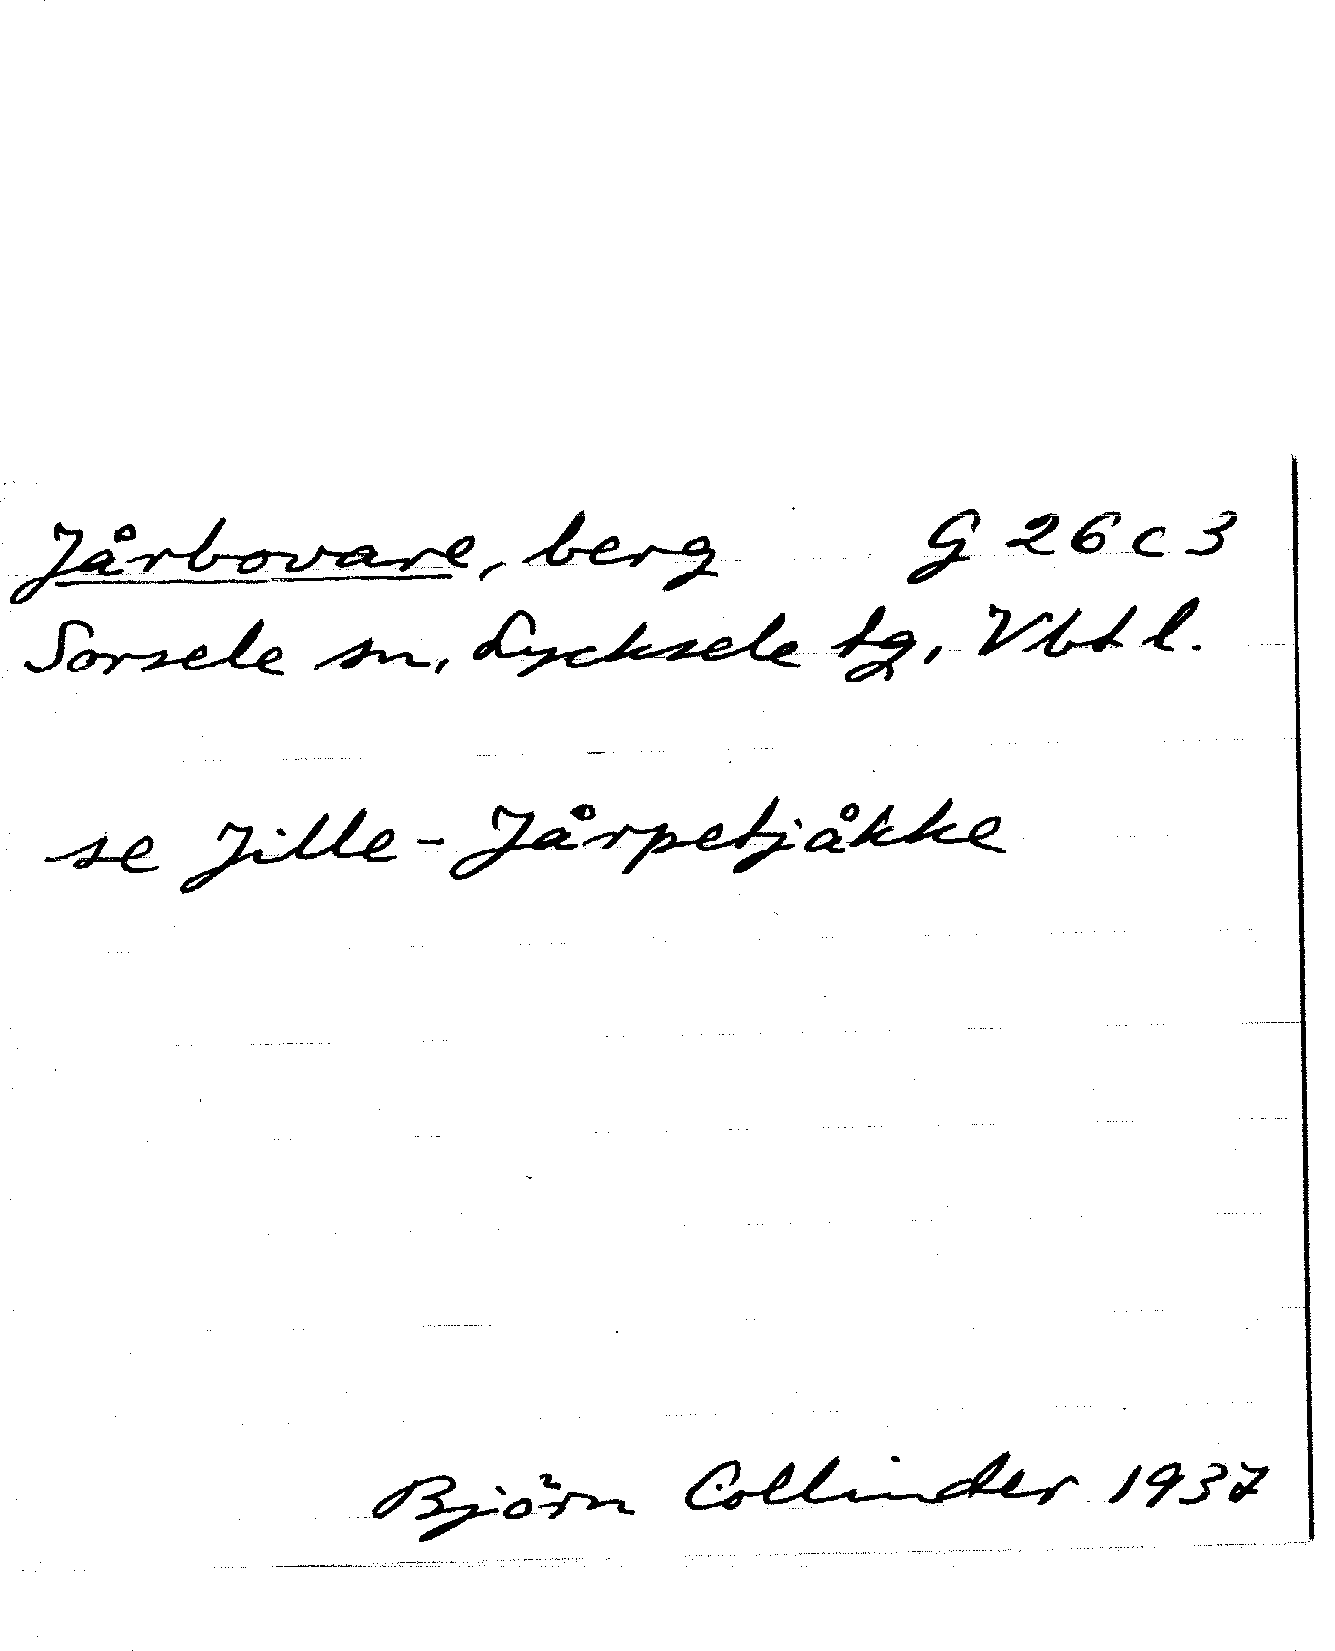 Jårbovare, berg G 26 c 3
Sorsele sn, Lycksele tg, Vbtl.
se Jille-Jårpetjåkke
Björn Collinder 1937